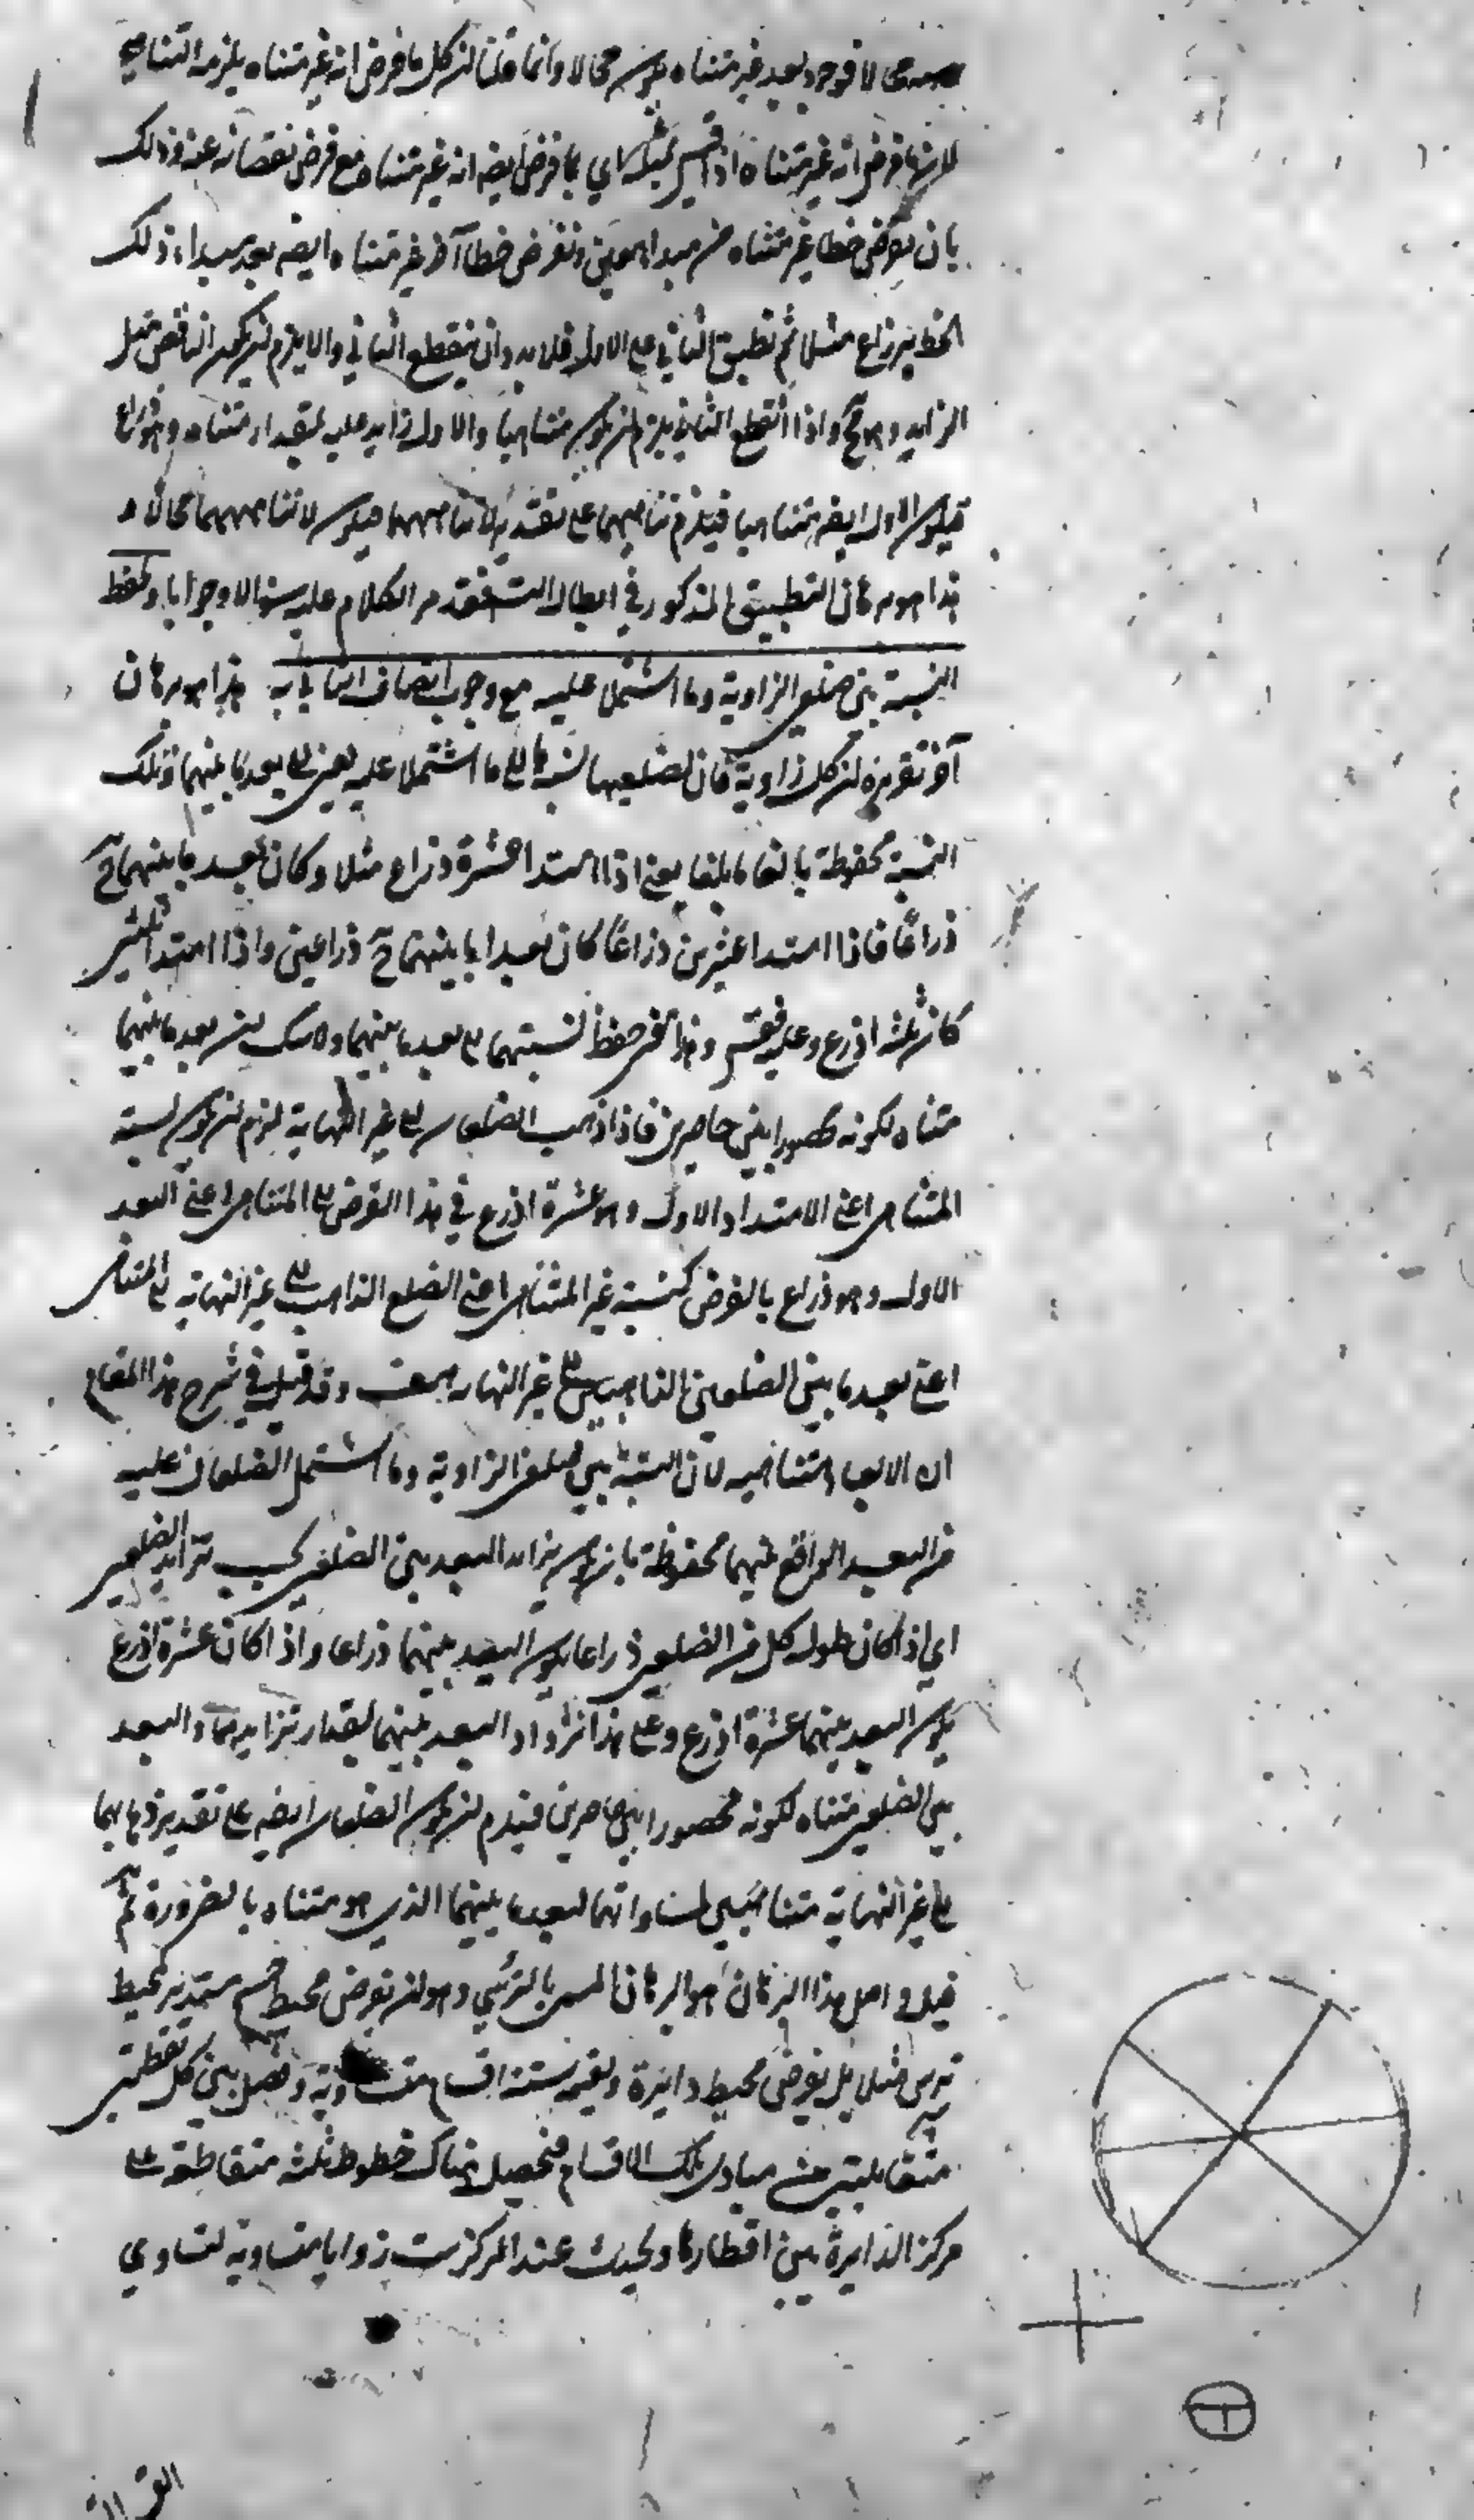 محالا فوجود بعد غير متناه يكون محالا وانما قلنا ان كل ما فرض انه غير متناه يلزمه التناهي
لان ما فرض انه غير متناه اذا قيس بمثله اي بما فرض ايضه انه غير متناه مع فرض نقصانه عنه وذلك
بان نفرض خطا غير متناه من مبداء معين ونفرض خطا آخر غير متناه ايضه بعد مبداء ذلك
الخط بذراع مثلا ثم نطبق الثاني على الاول فلا بد وان ينقطع الثاني والا يلزم ان يكون الناقص مثل
الزايد وهو مح واذا انقطع الثاني يلزم ان يكون متناهيا والاول زايد عليه بمقدار متناه وهو ذراع
فيكون الاول ايضه متناهيا فيلزم تناهيهما على تقدير لا تناهيهما فيكون لا تناهيهما محالا و
هذا هو برهان التطبيق المذكور في ابطال التسه فقد مر الكلام عليه سوالا وجوابا ولحفظ
النسبة بين ضلعي الزاوية وما اشتملا عليه مع وجوب اتصاف الثاني به هذا هو برهان
آخر تقريره ان كل زاوية فان لضلعيها نسبة ما الى ما اشتملا عليه يعني الى بعد ما بينهما وتلك
النسبة محفوظة بالغا ما بلغا يعني اذا امتدا عشرة ذراع مثلا وكان بعد ما بينهما ح
ذراعا فاذا امتدا عشرين ذراعا كان بعد ما بينهما ح ذراعين واذا امتدا ثلثين
كان ثلثة اذرع وعليه فقس وهذا هو حفظ نسبتهما الى بعد ما بينهما ولا شك ان بعد ما بينهما
متناه لكونه محصورا بين حاصرين فاذا ذهب الضلعان الى غير النهاية لزم ان يكون نسبة
المتناهي اعني الامتداد الاول وهو عشرة اذرع في هذا الفرض الى المتناهي اعني البعد
الاول وهو ذراع بالفرض كنسبة غير المتناهي اعني الضلع الذاهب الى غير النهاية الى المتناهي
اعني بعد ما بين الضلعين الذاهبين الى غير النهاية هف وقد قيل في شرح هذا المقام
ان الابعاد متناهية لان النسبة بين ضلعي الزاوية وما اشتمل الضلعان عليه
من البعد الواقع بينهما محفوظة بان يكون تزايد البعد بين الضلعين بحسب تزايد الضلعين
اي اذا كان طول كل من الضلعين ذراعا يكون البعد بينهما ذراعا واذا كان عشرة اذرع
يكون البعد بينهما عشرة اذرع وعلى هذا تزداد البعد بينهما بمقدار تزايدهما والبعد
بين الضلعين متناه لكونه محصورا بين حاصرين فيلزم ان يكون الضلعان ايضه على تقدير ذهابهما
الى غير النهاية متناهيين لمساواتهما لبعد ما بينهما الذي هو متناه بالضرورة ثم
قيل واصل هذا البرهان هو البرهان المسمى بالترسي وهو ان نفرض محيط جسم مستدير كمحيط
ترس مثلا بل نفرض محيط دايرة ونقسمه ستة اقسام متساوية ونصل بين كل نقطتين
متقابلتين من مبادي تلك الاقسام فيحصل هناك خطوط ثلثة متقاطعة على
مركز الدايرة هي اقطارها ويحدث عند المركز ست زوايا متساوية لتساوي